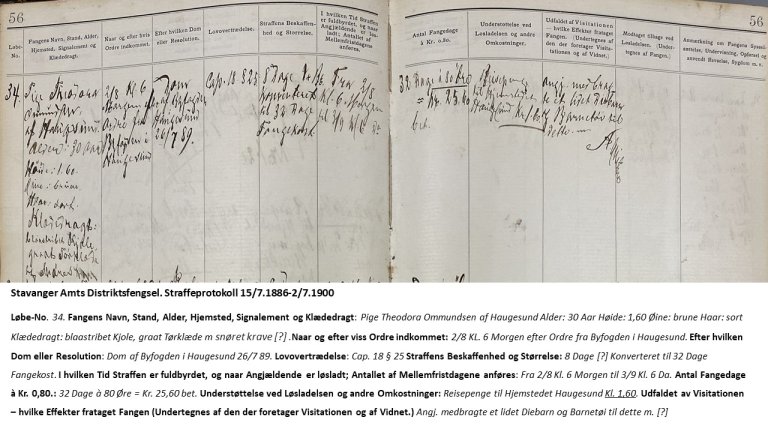 56
56
Løbe-
No.
Fangens Navn, Stand, Alder,
Hjemsted, Signalement og
Klædedragt.
Naar og efter hvis
Ordre indkommet.
Efter hvilken Dom
eller Resolution.
Lovovertrædelse.
Straffens Beskaffen-
hed og Størrelse.
I hvilken Tid Straffen
er fuldbyrdet, og naar
Angjældende er
løsladt; Antallet af
Mellemfristdagene
anføres.
Antal Fangedage
à Kr. 0,80.
Understøttelse ved
Løsladelsen og andre
Omkostninger.
Udfaldet af Visitationen
– hvilke Effekter frataget
Fangen. (Undertegnes af
den der foretager Visita-
tionen og af Vidnet.)
Modtaget tilbage ved
Løsladelsen. (Under-
tegnes af Fangen.)
Anmerkning om Fangens
anvendt Revselse, Sygdom m. v.
34.
Pige Theodora
Ommundsen
af Haugesund
Alder: 30 Aar
Høide: 1.60.
Øine: brune
Haar: sort.
Klædedragt:
blaastribet Kjole,
graat Tørklæde
2/8 Kl. 6
Morgen efter
Ordre fra
Byfogden i
Haugesund
Dom
af Byfogden
i Haugesund
26/7 89.
Cap. 18 § 25
8 Dage
Konverteret
til 32 Dage
Fangekost.
Fra 2/8
Kl. 6 Morgen
til 3/9 Kl. 6
32 Dage à 80 Øre
= Kr. 25.60
bet.
Reisepenge
til Hjemstedet
Haugesund Kr. 1.60
Angj. medbragte
et lidet Diebarn
og Barnetøi til
dette m.
Stavanger Amts Distriktsfengsel. Straffeprotokoll 15/7.1886-2/7.1900
Løbe-No. 34. Fangens Navn, Stand, Alder, Hjemsted, Signalement og Klædedragt: Pige Theodora Ommundsen af Haugesund Alder: 30 Aar Høide: 1,60 Øine: brune Haar: sort
Klædedragt: blaastribet Kjole, graat Tørklæde m snøret krave [?] .Naar og efter viss Ordre indkommet: 2/8 KL. 6 Morgen efter Ordre fra Byfogden i Haugesund. Efter hvilken
Dom eller Resolution: Dom af Byfogden i Haugesund 26/7 89. Lovovertrædelse: Cap. 18 § 25 Straffens Beskaffenhed og Størrelse: 8 Dage [?] Konverteret til 32 Dage
Fangekost. I hvilken Tid Straffen er fuldbyrdet, og naar Angjældende er løsladt; Antallet af Mellemfristdagene anføres: Fra 2/8 Kl. 6 Morgen til 3/9 Kl. 6 Da. Antal Fangedage
à Kr. 0,80.: 32 Dage à 80 Øre = Kr. 25,60 bet. Understøttelse ved Løsladelsen og andre Omkostninger: Reisepenge til Hjemstedet Haugesund Kl. 1,60. Udfaldet av Visitationen
– hvilke Effekter frataget Fangen (Undertegnes af den der foretager Visitationen og af Vidnet.) Angj. medbragte et lidet Diebarn og Barnetøi til dette m. [?]